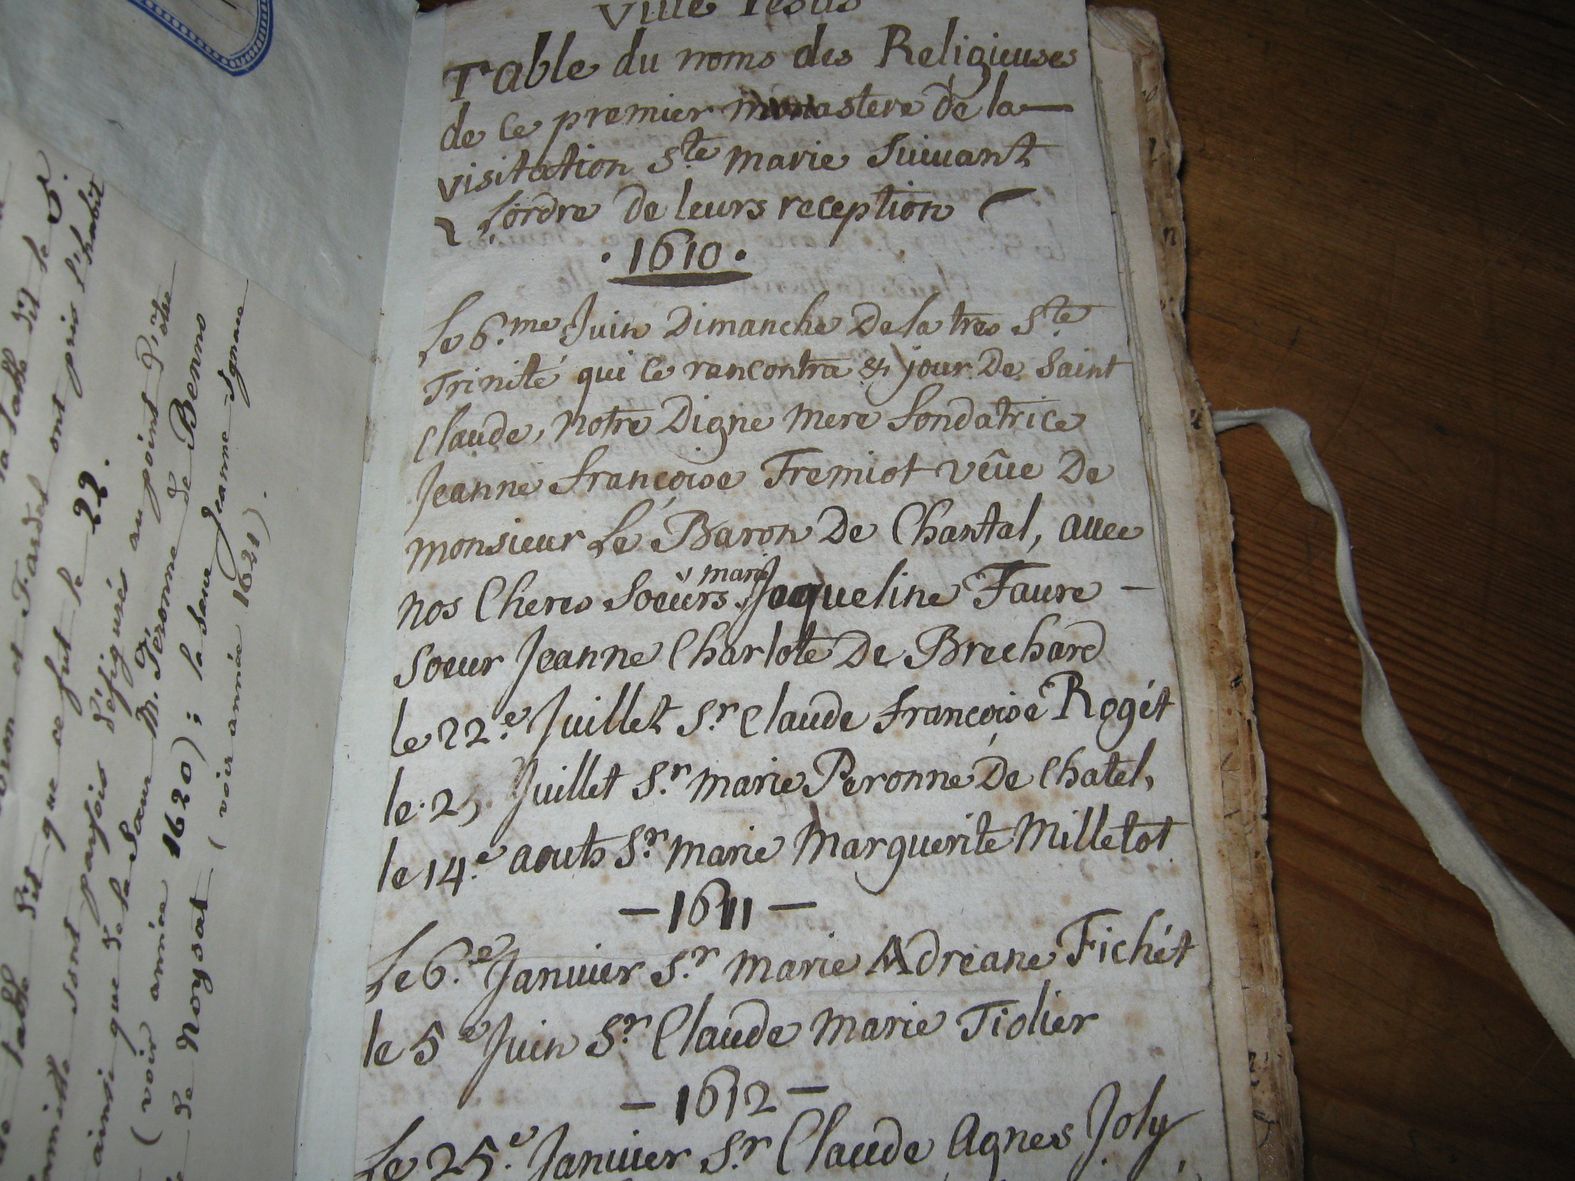 Table du noms des Religieuses
de ce premier monastere de la
visitation Ste marie suivant
L'ordre de leurs reception
1610
Le 6.me Juin Dimanche De la tres Ste
Trinité qui ce rancontra jour De Saint
Claude, notre Digne mere fondatrice
Jeanne françoise Fremiot vêue De
monsieur Le Baron De Chantal, avec
nos Cheres Soeurs marie Jaqueline Favre
soeur Jeanne Charlote De Brechard
le 22.e Juillet Sr. Claude françoise Rogét
le 2 Juillet S.r marie Peronne De Chatel,
le 14.e aouts S.r marie Marguerite Milletot
— 1611 —
Le 6.e Janvier S.r marie Adreane Fichét
le 5e Juin S.r Claude marie Tiolier
— 1612 —
Le 25.e Janvier S.r Claude Agnes Joly
la table dit le 5.
ont pris l'habit
table dit que ce fut le 22.
sont parfois défigurés au point d'être
ainsi que de la Sœur M. Péronne de Benno
(voir année 1620); la sœur Jeanne-Agnane
de Noysat (voir année 1621).